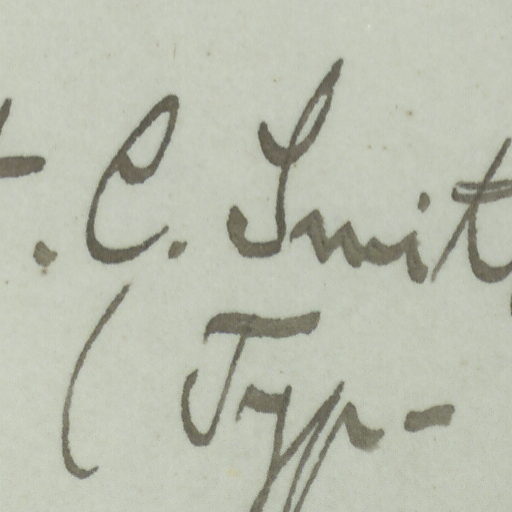 . C. Smit
( Typ-